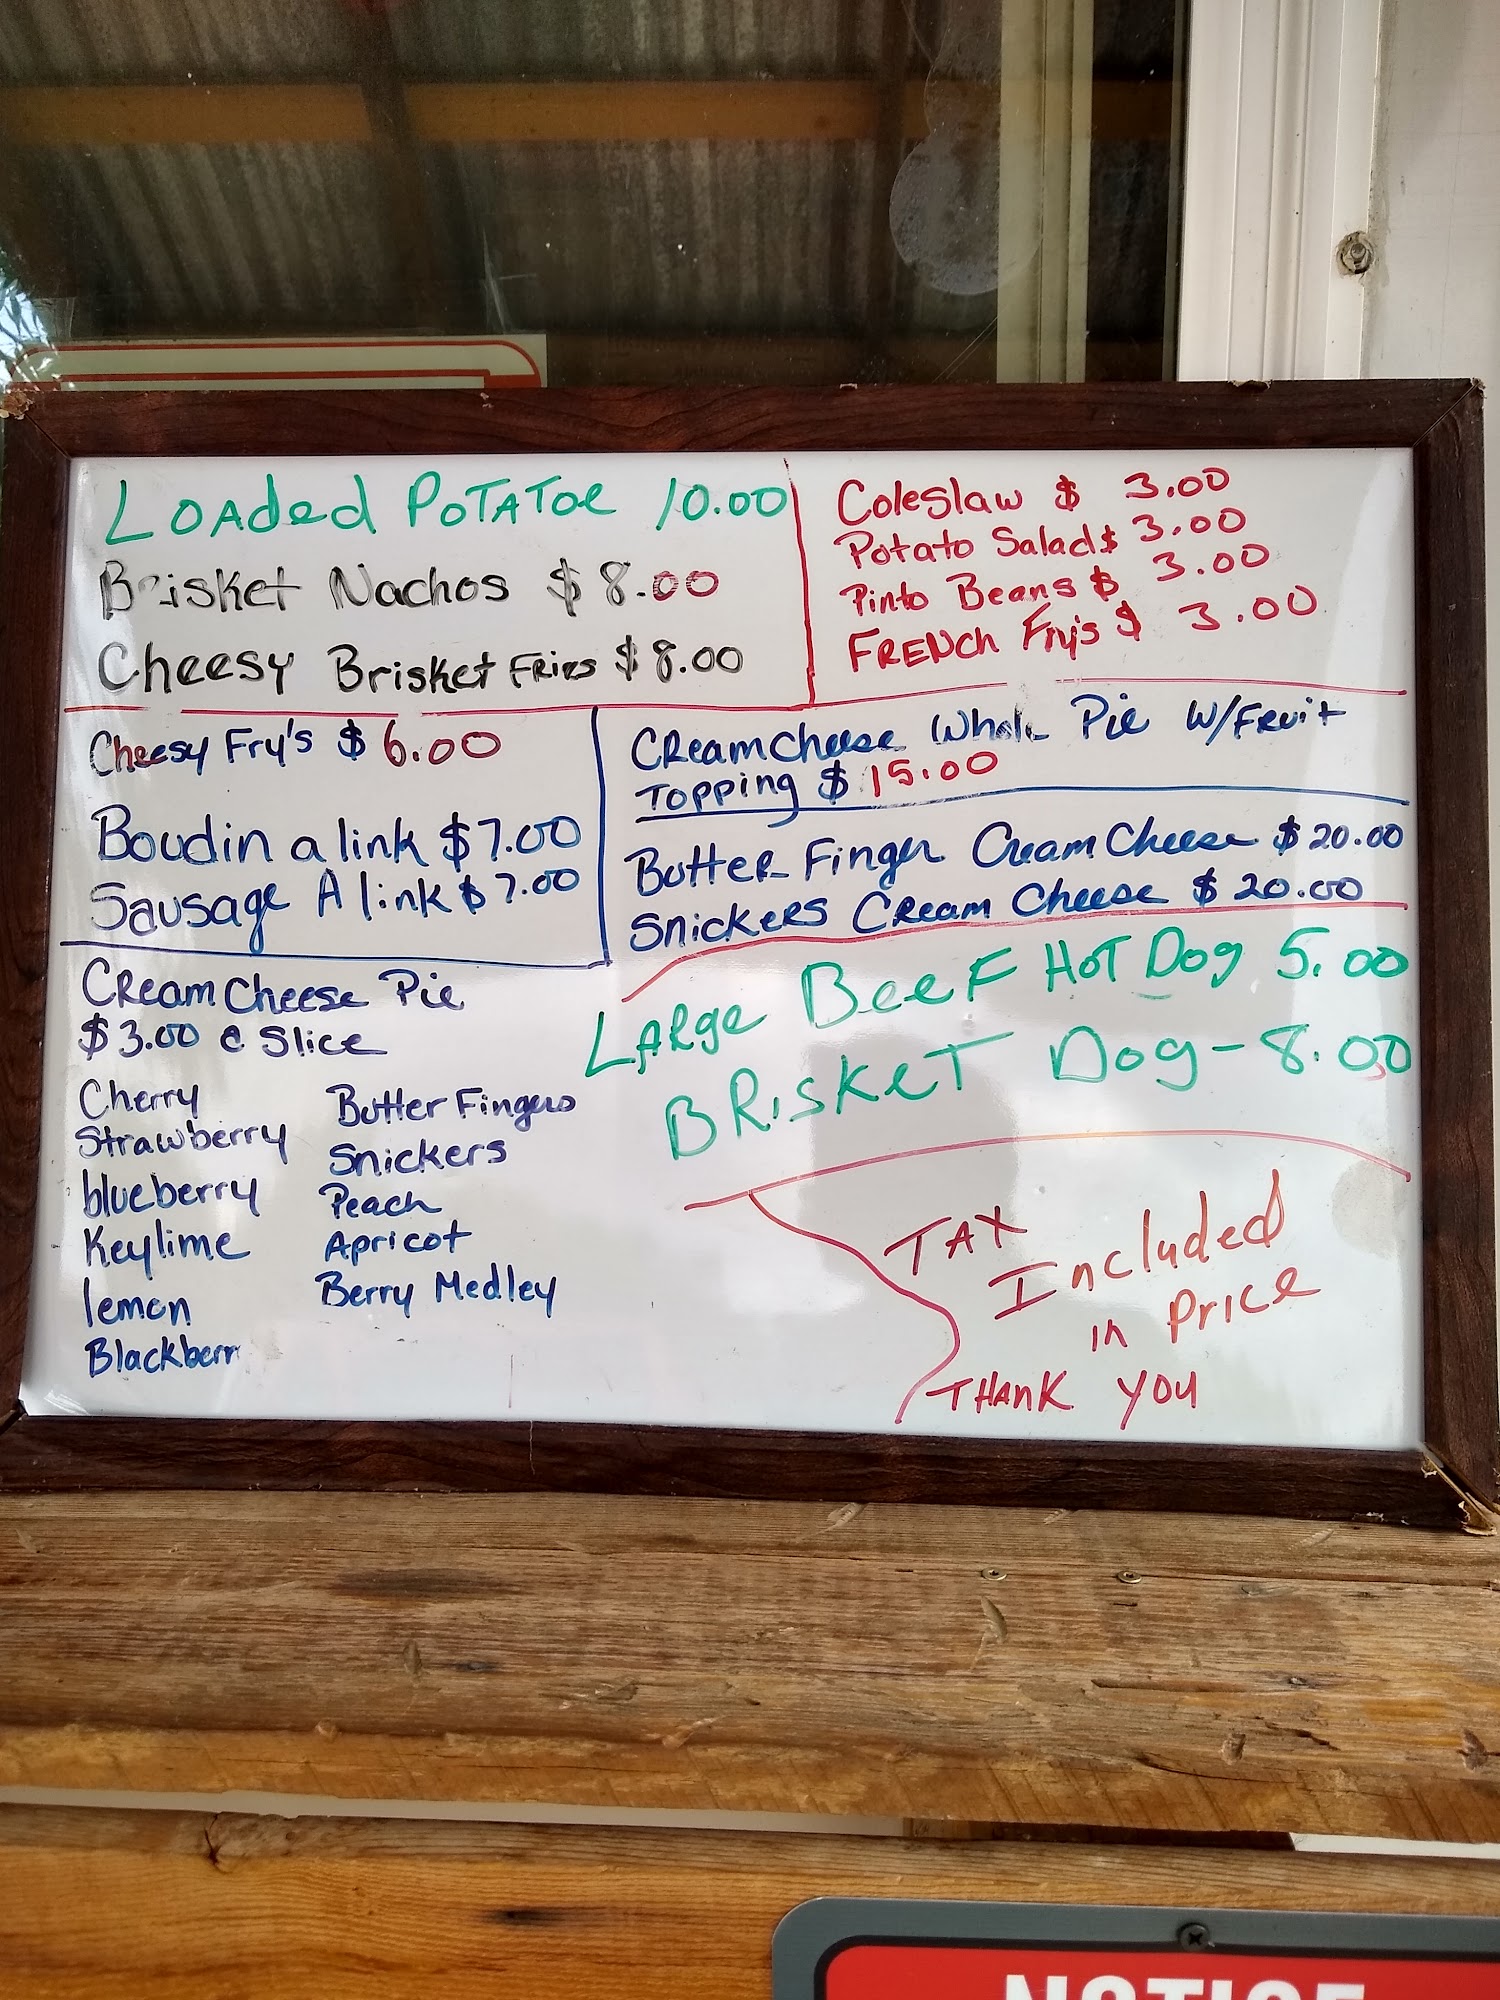 Loaded Potatoe 10.00
Brisket Nachos $8.00
Cheesy Brisket Fries $8.00
Coleslaw $ 3.00
Potato Salad $ 3.00
Pinto Beans $ 3.00
FRENCH Fry's $ 3.00
Cheesy Fry's $ 6.00
Boudin a link $7.00
Sausage A link $7.00
CReamcheese Whole Pie W/Fruit
Topping $ 15.00
Butter Finger Cream Cheese $20.00
Snickers Cream Cheese $20.00
CReam Cheese Pie
$3.00 a Slice
Cherry
Strawberry
blueberry
Keylime
lemon
Blackberr
Butter Fingers
Snickers
Peach
Apricot
Berry Medley
LARge BeeF HoT Dog 5.00
BRisKeT Dog - 8.00
TAX
Included
in Price
THANK YOU
NOTICE